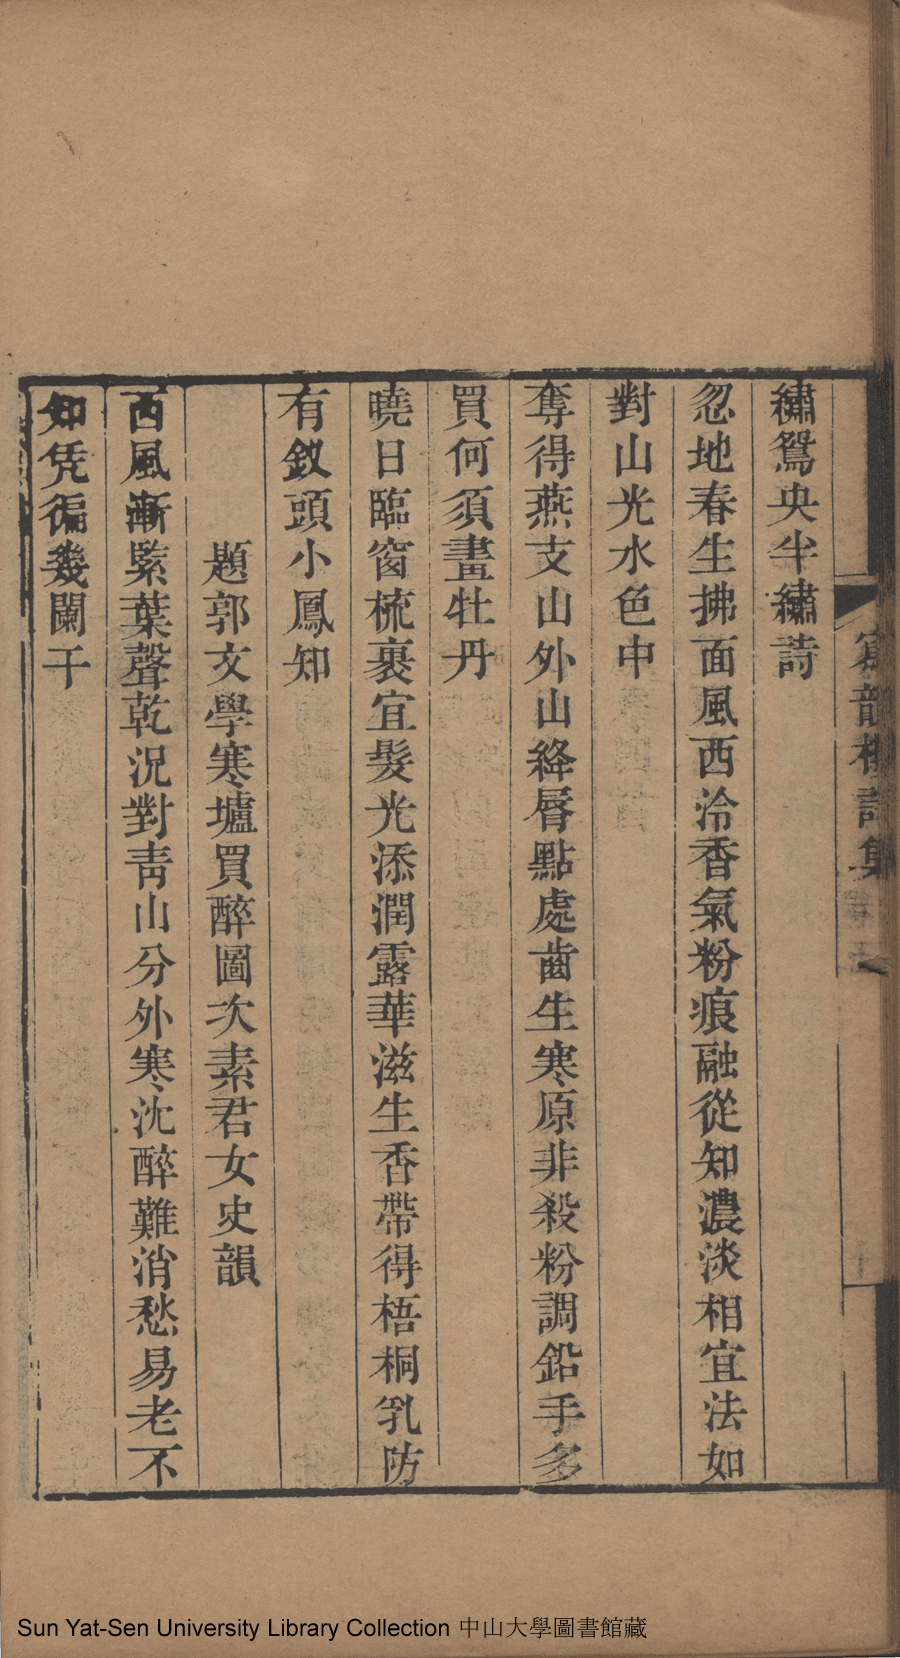 繡鴛央半繡詩
忽地春生拂面風西泠香氣粉痕融從知濃淡相宜法如
對山光水色中
奪得燕支山外山絳脣點處齒生寒原非殺粉調鉛手多
買何須畫牡丹
曉日臨窗梳裹宜髮光添潤露華滋生香帶得梧桐乳防
有釵頭小鳳知
題郭文學寒壚買醉圖次素君女史韻
西風漸緊葉聲乾況對靑山分外寒沈醉難消愁易老不
知凭徧幾闌干
韵樓詩集
Sun Yat-Sen University Library Collection 中山大學圖書館藏